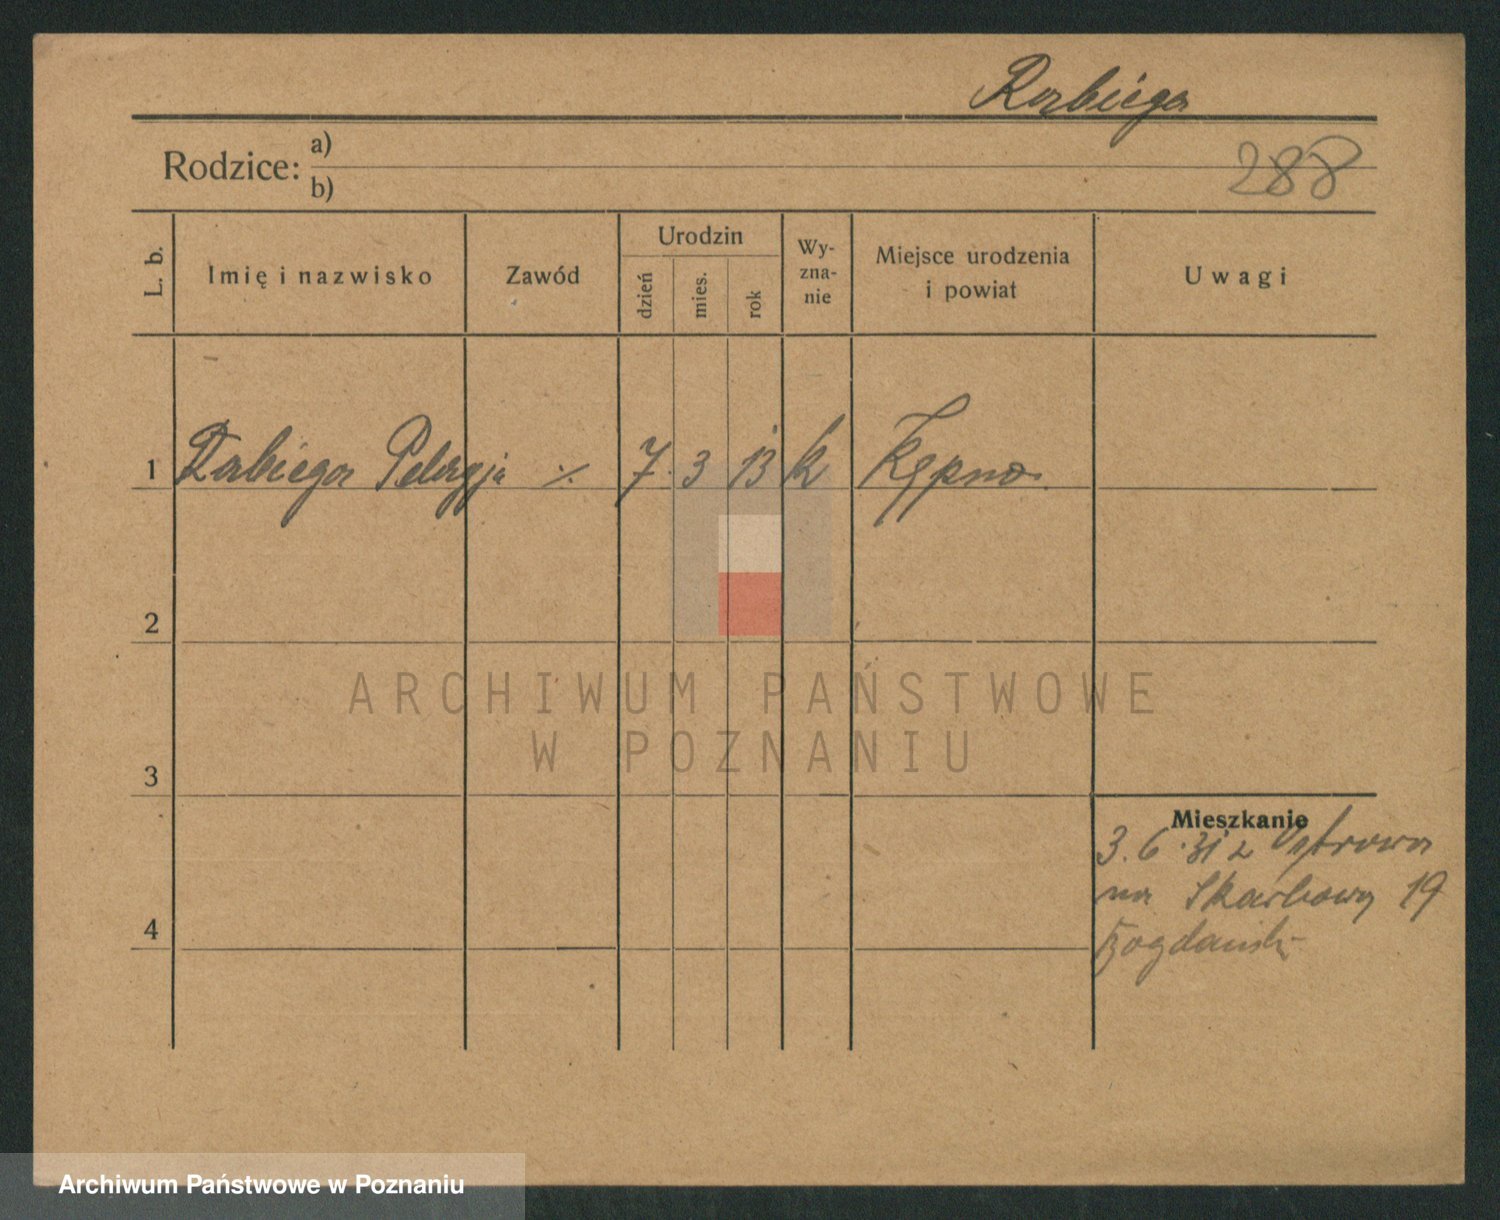 Rabiega
Rodzice: a)
b)
288
L. b.
Imię i nazwisko
Zawód
Urodzin
dzień
mies.
rok
Wy-
zna-
nie
Miejsce urodzenia
i powiat
Uwagi
1 Rabiega Pelagja ·/. 7. 3 13 k Kępno
2
3
4
Mieszkanie
3. 6. 31 z Ostrowa
na Skarbowy 19
Bogdański
ARCHIWUM PAŃSTWOWE
W POZNANIU
Archiwum Państwowe w Poznaniu